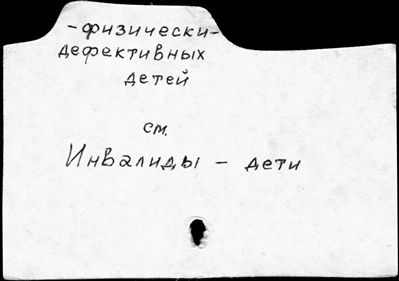 -физически-
дефективных
детей
см.
Инвалиды - дети